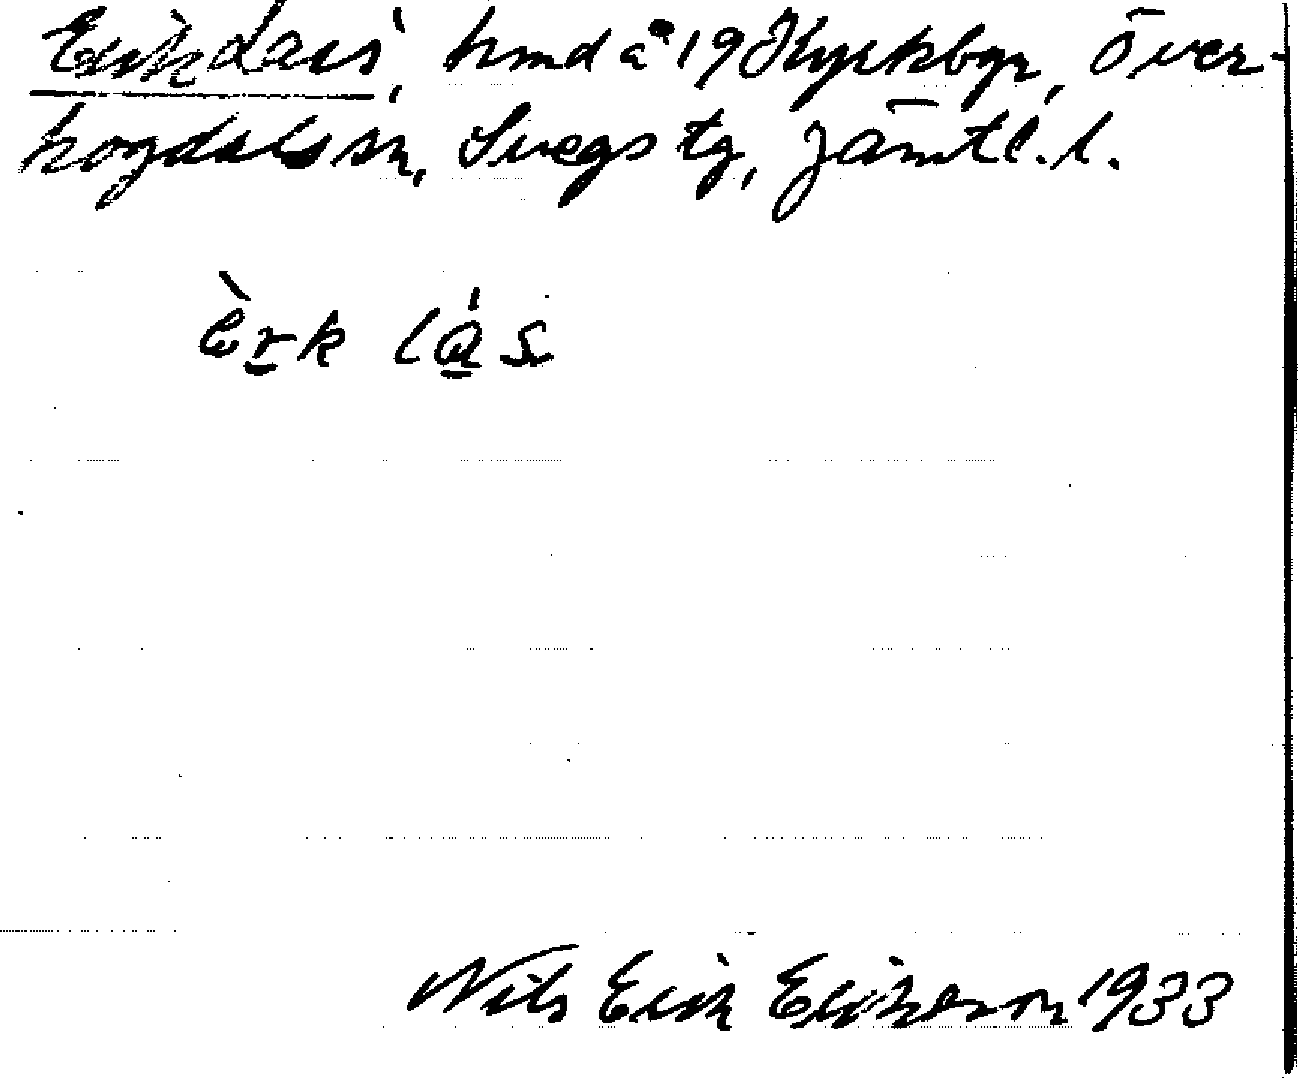 Erik Lars, hmd å 19 Kyrkbyn, Över-
hogdals sn, Svegs tg, Jämtl. l.
èrk lás
Nils Erik Erikson 1933